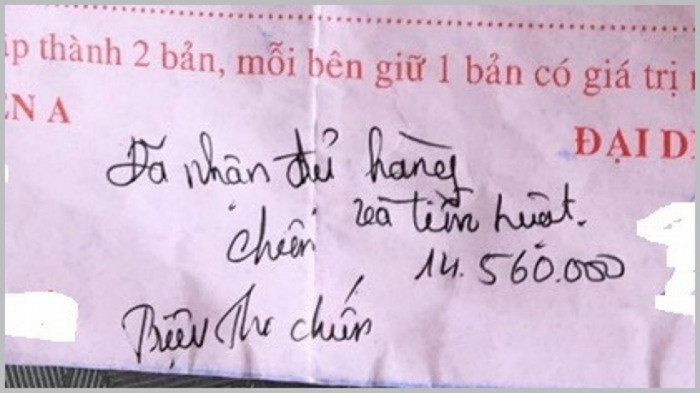 ập thành 2 bản, mỗi bên giữ 1 bản có giá trị
ÊN A
ĐẠI D
Đã nhận đủ hàng
chiến và tiền
14.560.000
Triệu Thị chiến